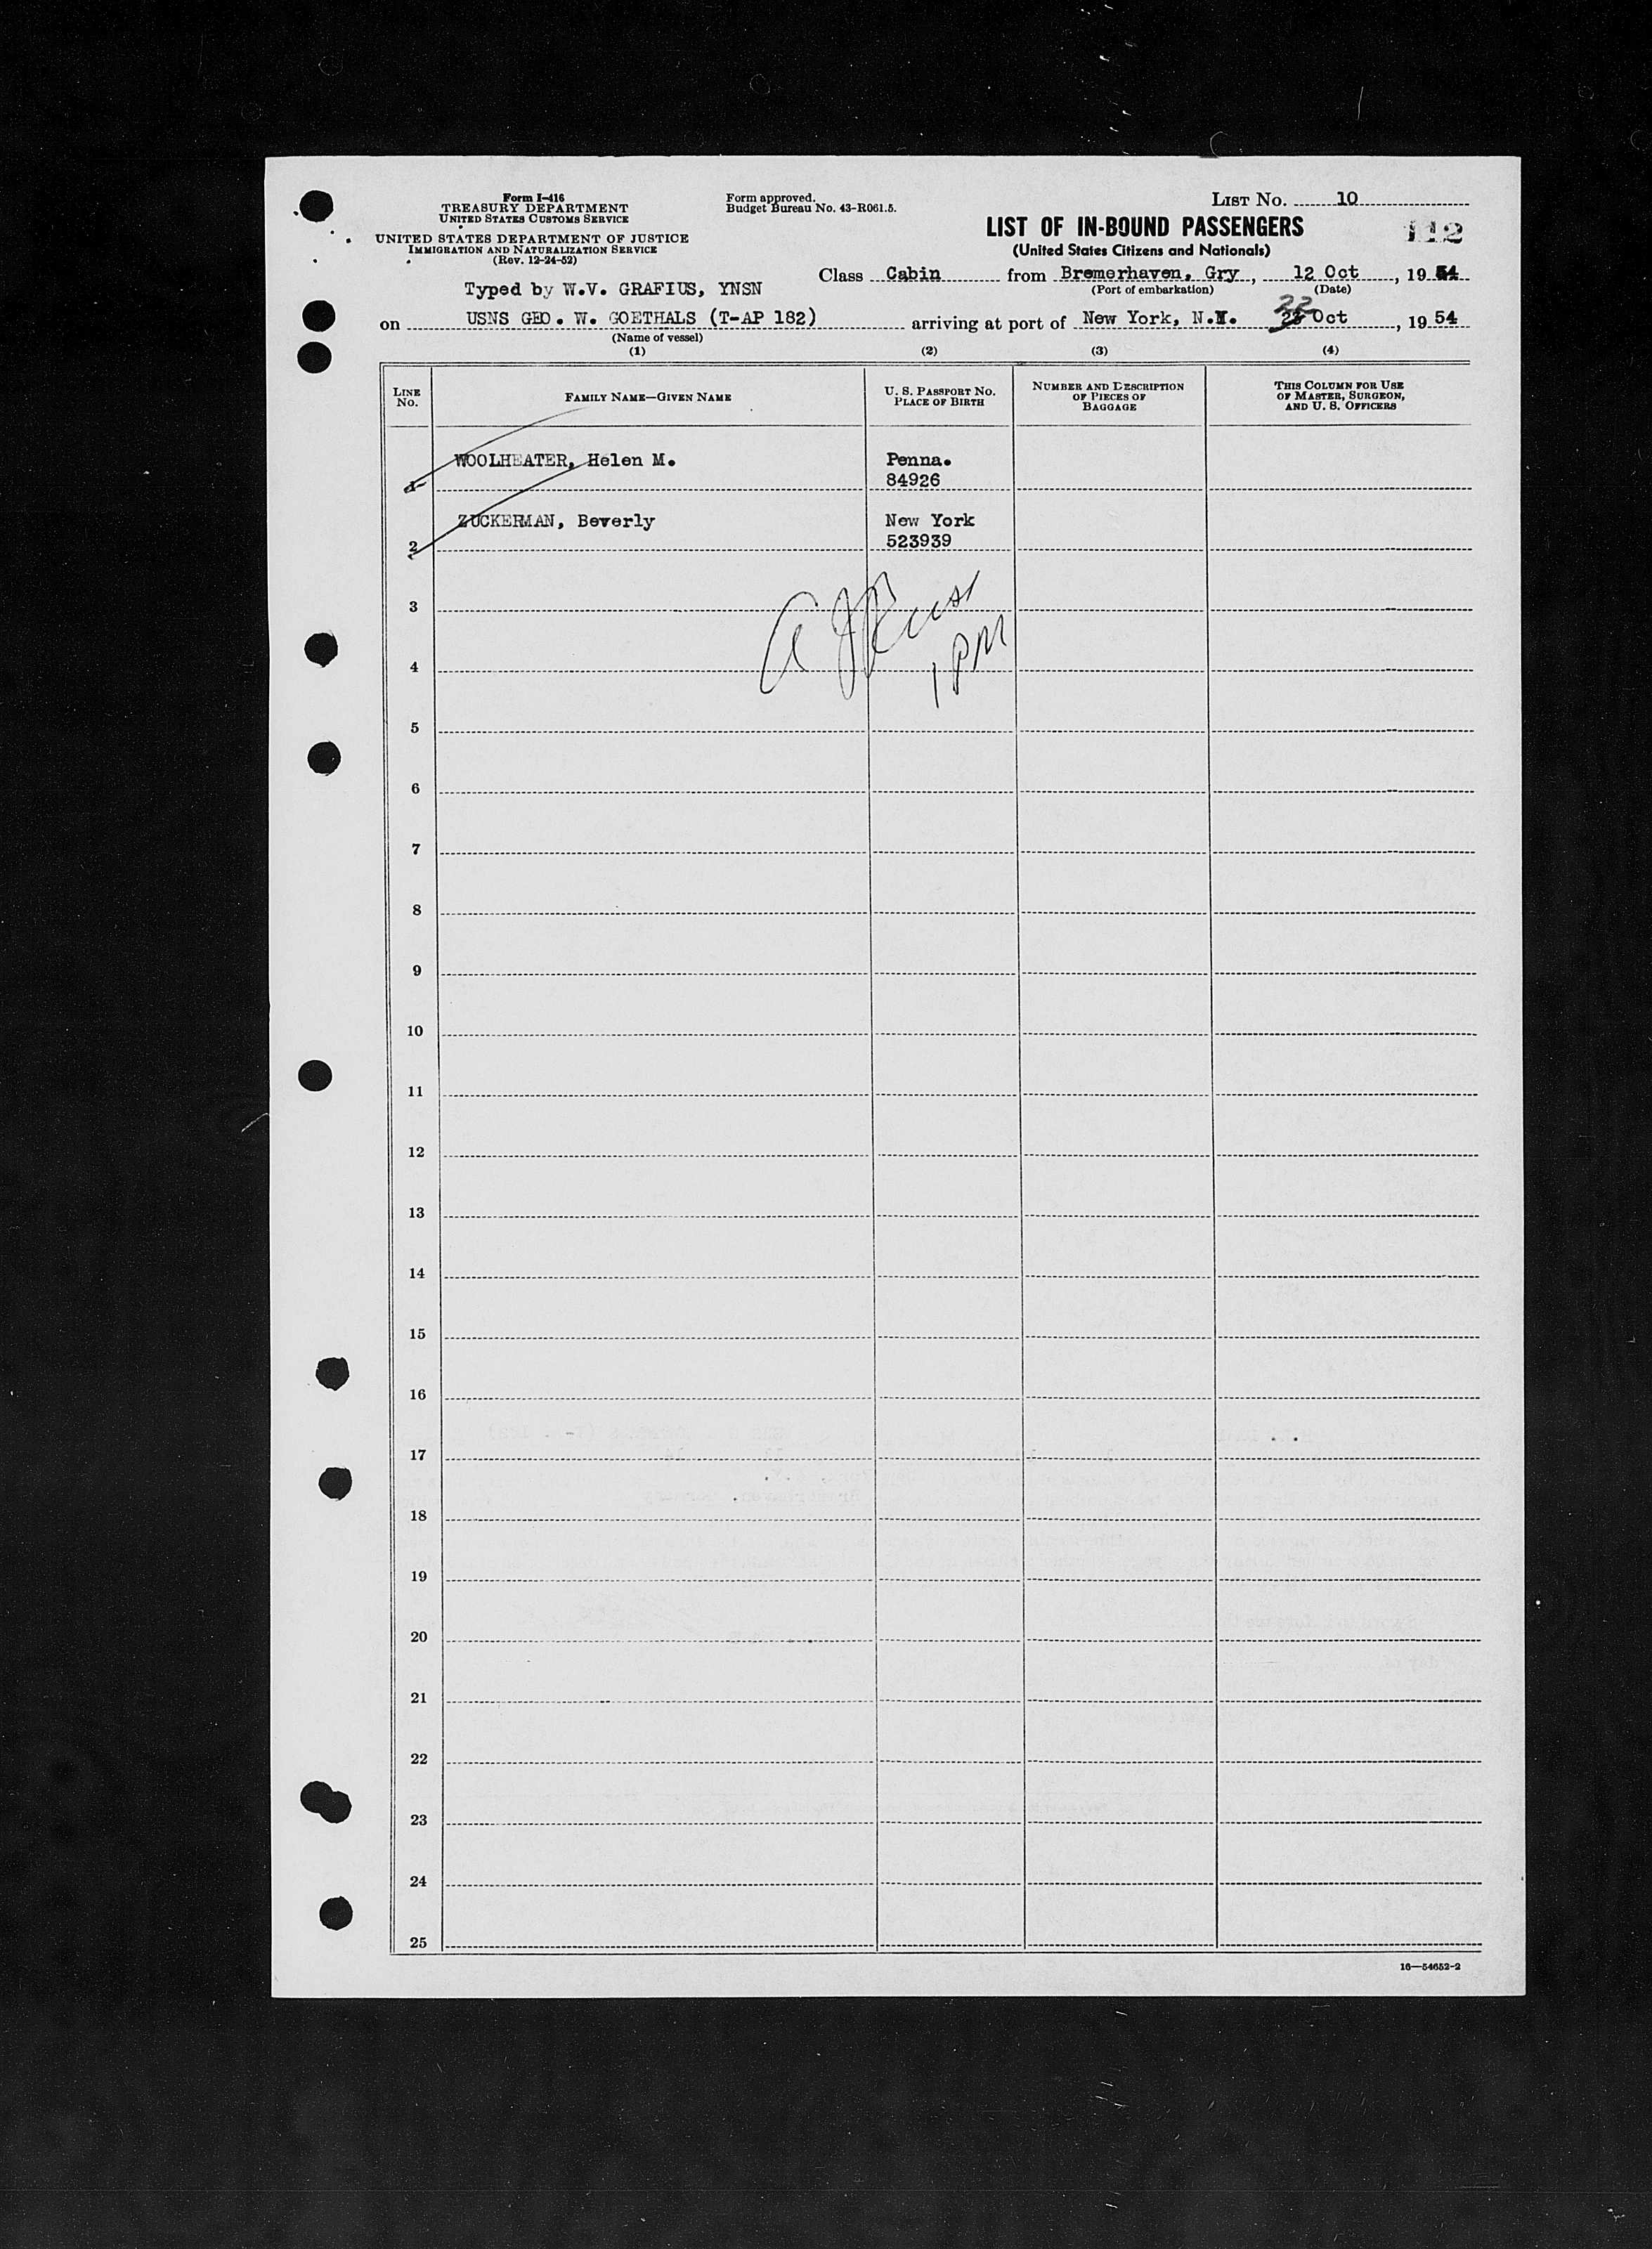 Form I-416
TREASURY DEPARTMENT
UNITED STATES CUSTOMS SERVICE
UNITED STATES DEPARTMENT OF JUSTICE
IMMIGRATION AND NATURALIZATION SERVICE
(Rev. 12-24-52)
Form approved.
Budget Bureau No. 43-R061.5.
LIST No. 10
LIST OF IN-BOUND PASSENGERS
112
(United States Citizens and Nationals)
Class Cabin from Bremerhaven, Gry, 12 Oct, 1954
(Port of embarkation) (Date)
Typed by W.V. GRAFIUS, YNSN
on USNS GEO. W. GOETHALS (T-AP 182) arriving at port of New York, N.Y. 22 Oct, 1954
(Name of vessel)
(1) (2) (3) (4)
LINE No.
FAMILY NAME—GIVEN NAME
U. S. PASSPORT NO.
PLACE OF BIRTH
NUMBER AND DESCRIPTION
OF PIECES OF
BAGGAGE
THIS COLUMN FOR USE
OF MASTER, SURGEON,
AND U. S. OFFICERS
WOOLHEATER, Helen M. Penna.
1 84926
ZUCKERMAN, Beverly New York
2 523939
3
4
1 PM
5
6
7
8
9
10
11
12
13
14
15
16
17
18
19
20
21
22
23
24
25
16—54652-2